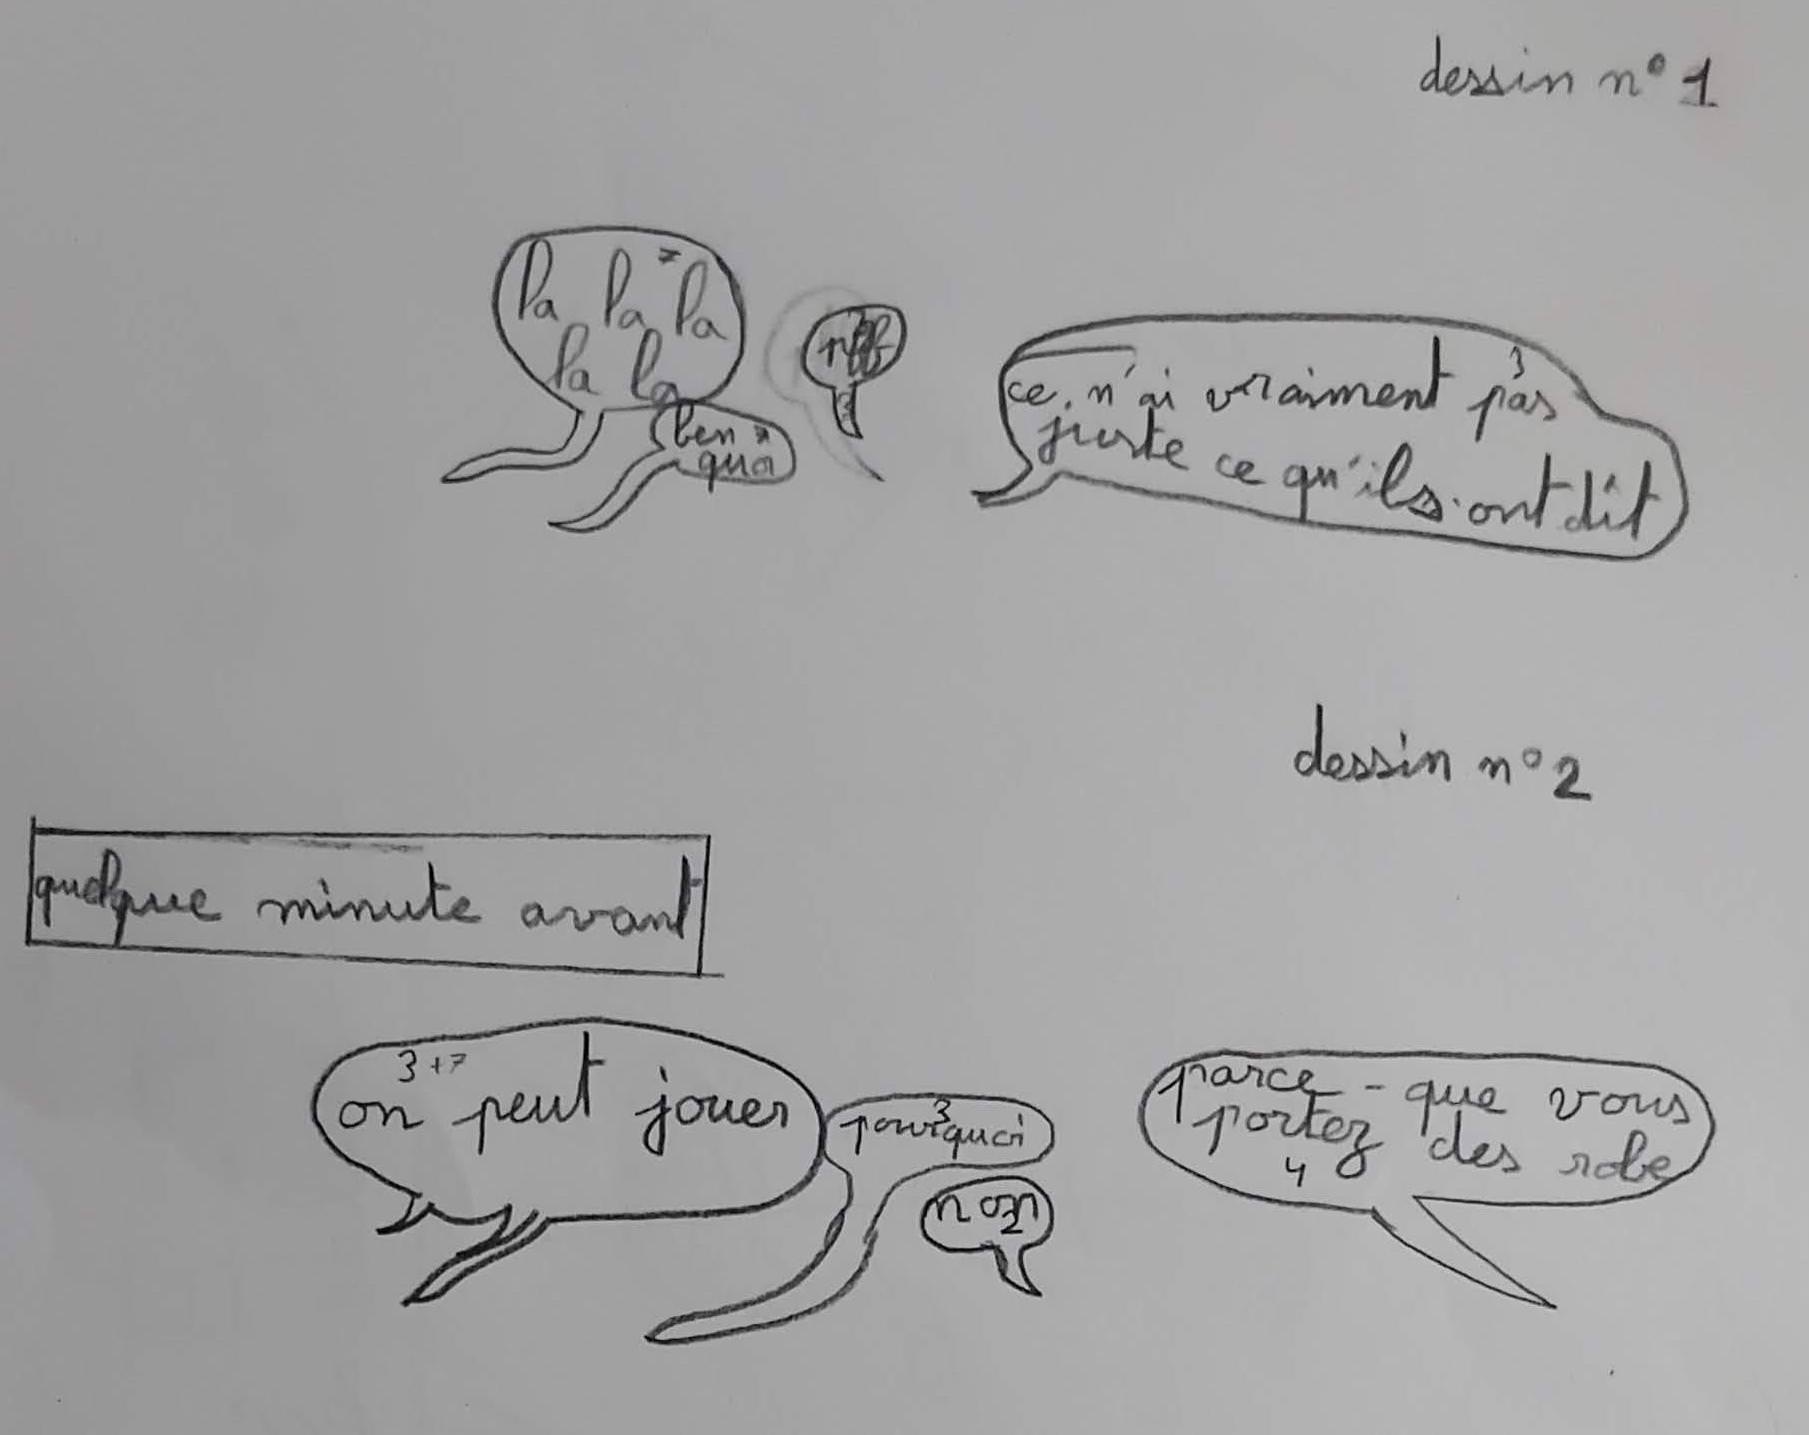 dessin n° 1
la la 7 la
la la
ben 7
quoi
3
ce n'ai vraiment pas
juste ce qu'ils ont dit
dessin n° 2
quelque minute avant
3+7
on peut jouer
3
pourquoi
non
2
parce-que vous
portez des robe
4